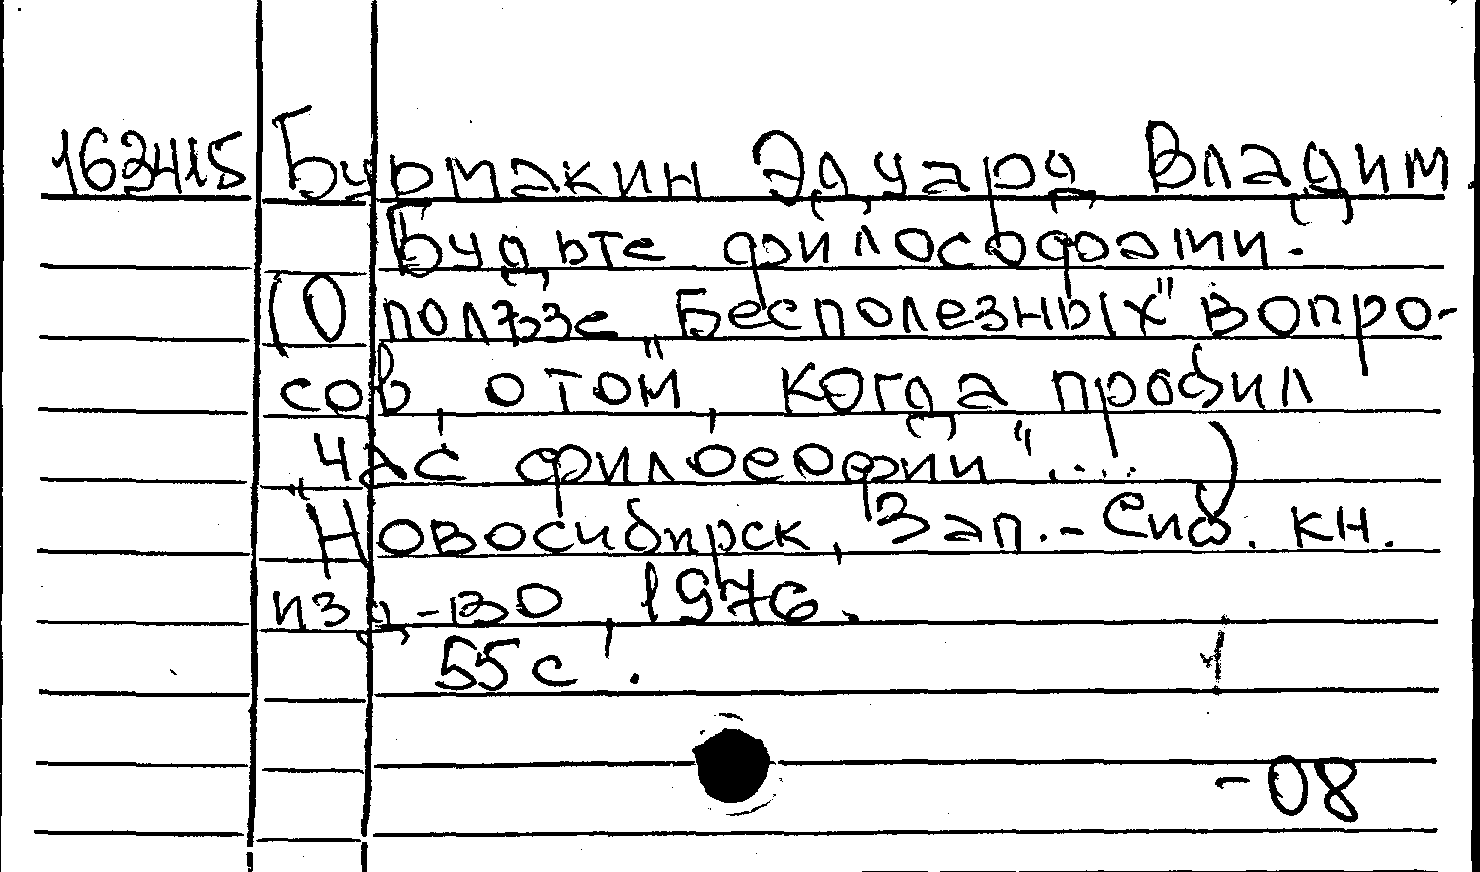 163415 Бурмакин Эдуард Владим.
Будьте философами.
(О пользе „Бесполезных" вопро-
сов, о том, когда пробил
„час философии"...)
Новосибирск, Зап.-Сиб. кн.
изд-во, 1976.
55 с.
-08